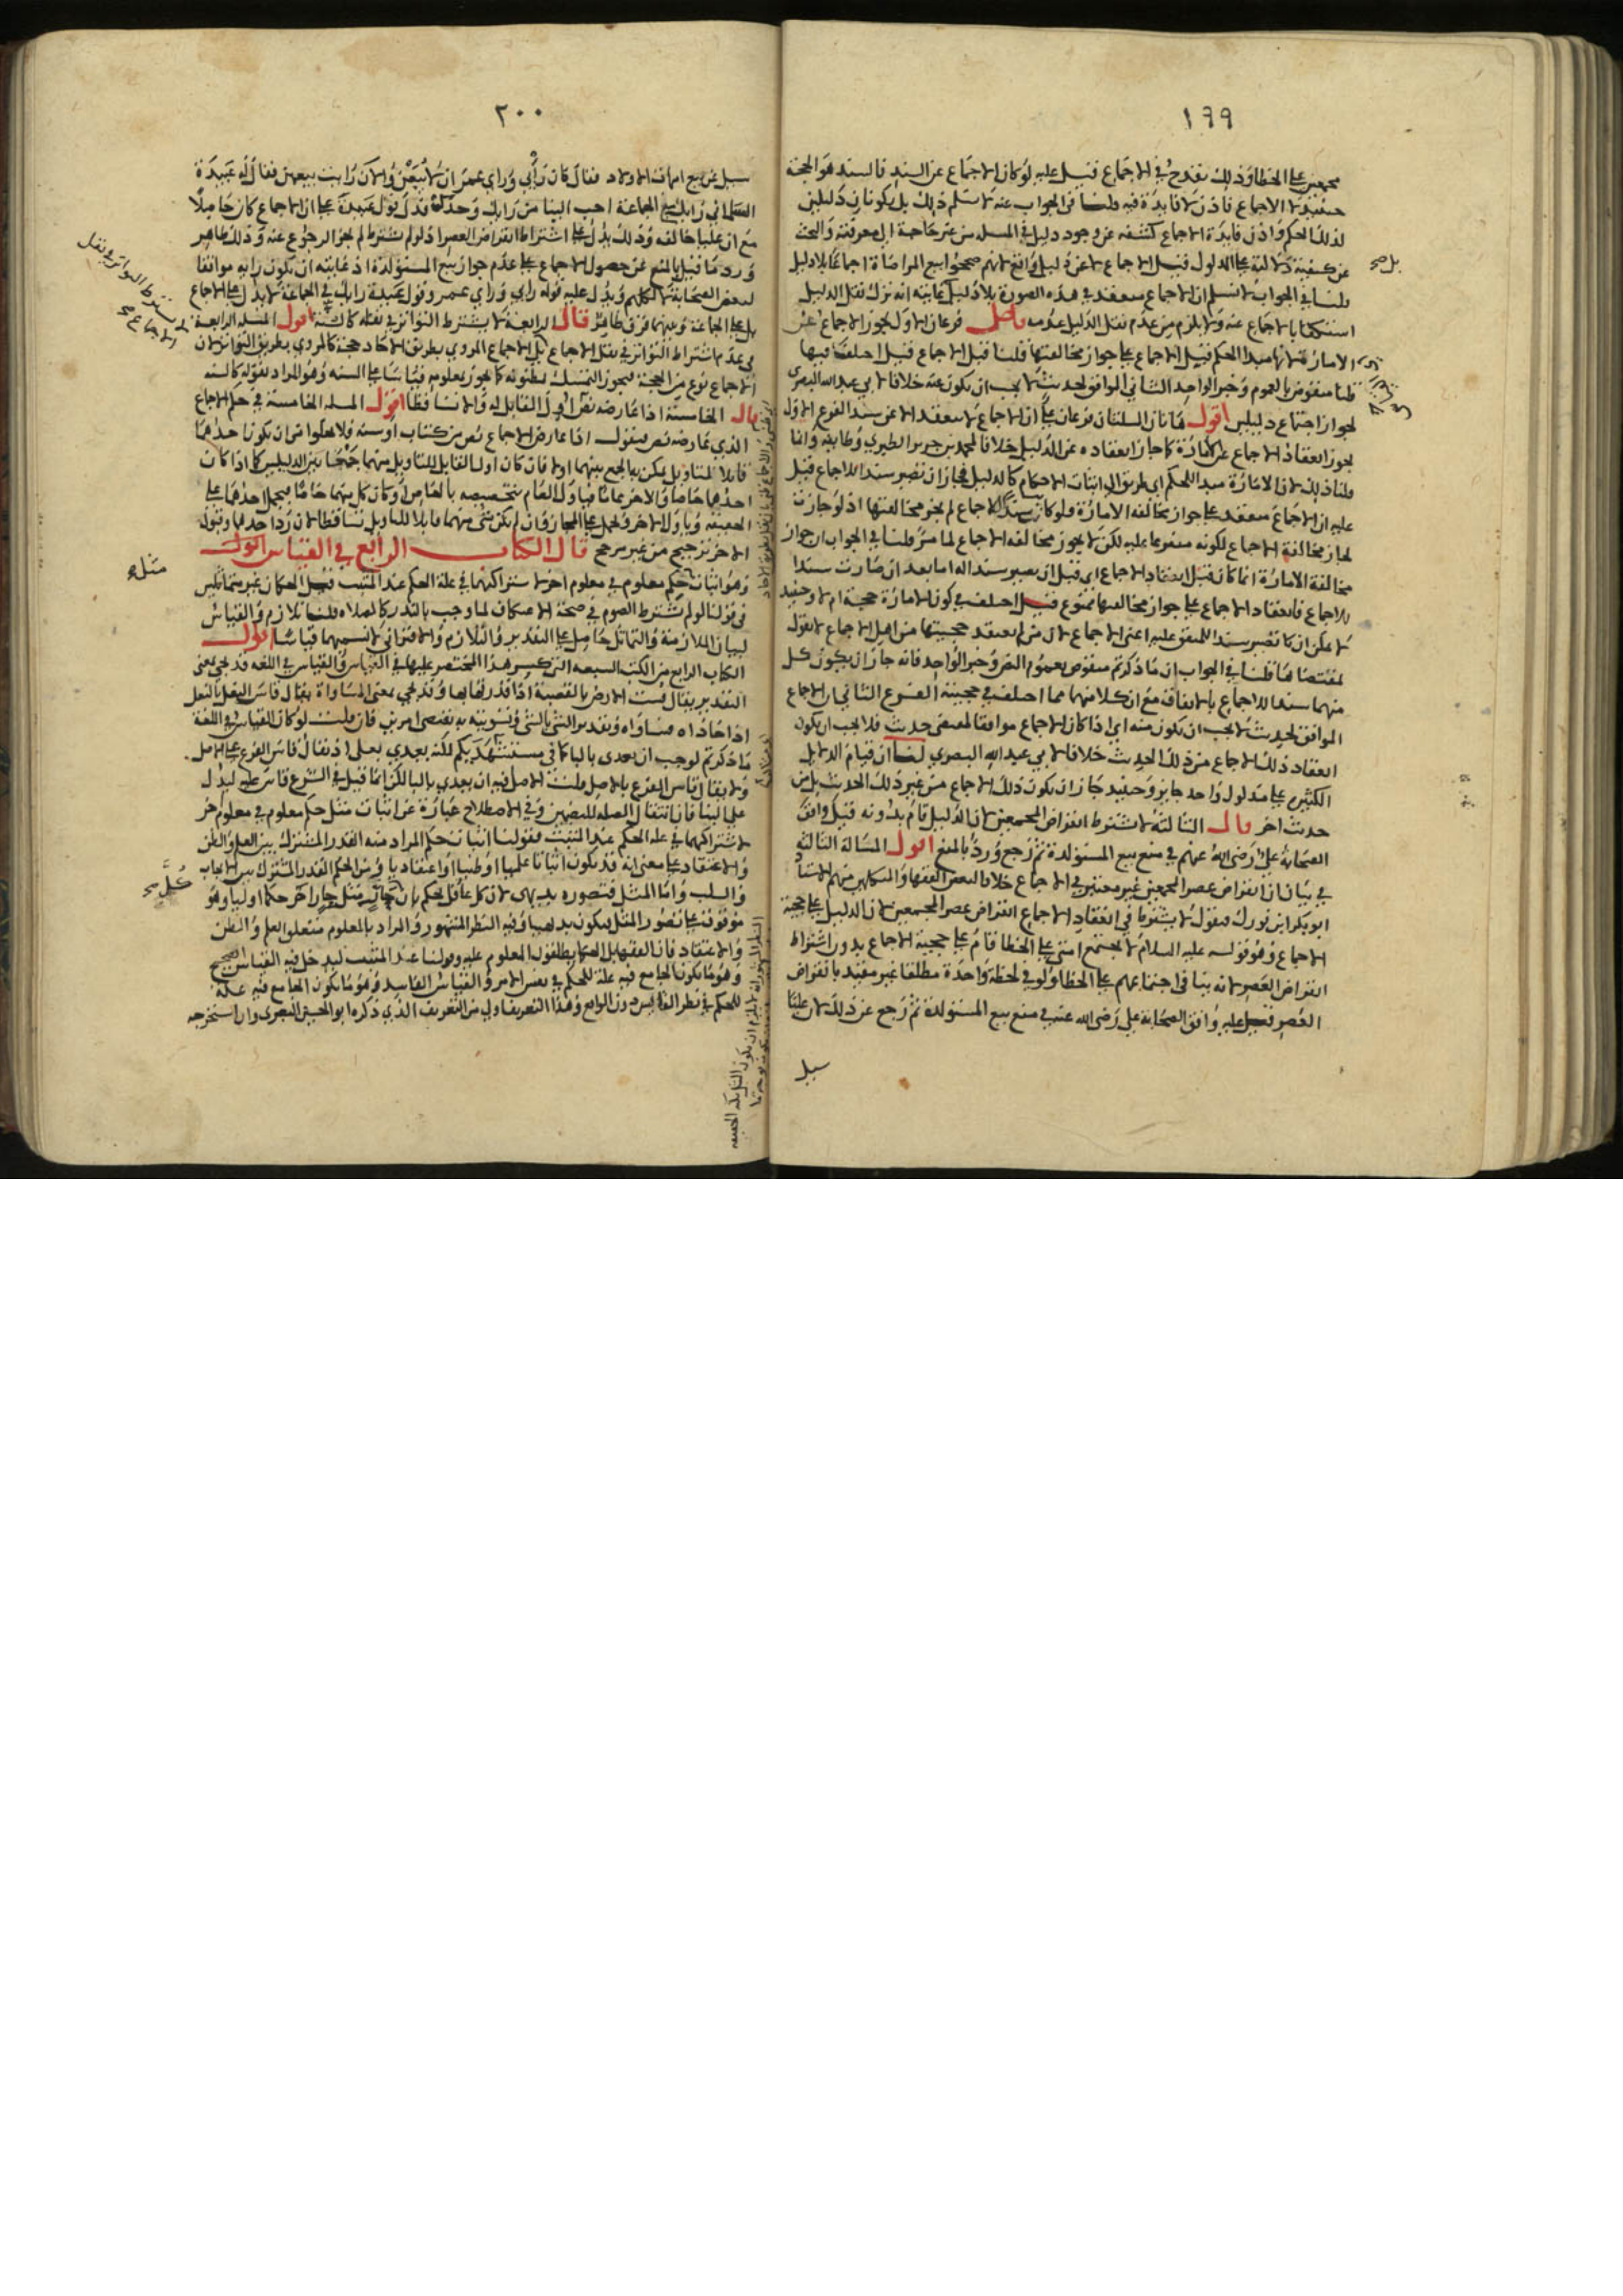 ١٩٩
مجمعين على الخطأ وذلك يقدح في الاجماع قيل عليه لو كان الاجماع عن السند فالسند هو الحجة
حينئذ لا الاجماع فاذن لا فايدة فيه قلنا في الجواب عنه لا نسلم ذلك بل يكونان دليلين
لذلك الحكم واذن فايدة الاجماع كشفه عن وجود دليل في المسله من غير حاجة الى معرفته والبحث
عن كيفية دلالته على المدلول قيل الاجماع لا عن دليل واقع لانهم صححوا بيع المراضاة اجماعا بلا دليل
قلنا في الجواب لا نسلم ان الاجماع منعقد في هذه الصورة بلا دليل غايته انه ترك نقل الدليل
استغناء بالاجماع عنه ولا يلزم من عدم نقل الدليل عدمه فرعان الاول يجوز الاجماع عن
الامارة لانها مبدا الحكم قيل الاجماع على جواز مخالفتها قلنا قبل الاجماع قيل اختلف فيها
قلنا منقوض بالعموم وخبر الواحد الثاني الموافق لحديث لا يجب ان يكون عنه خلافا لابي عبد الله البصري
لجواز اجتماع دليلين اقول هاتان المسلتان فرعان على ان الاجماع لا ينعقد الا عن سند الفرع الاول
يجوز انعقاد الاجماع عن الامارة كما جاز انعقاده عن الدليل خلافا لمحمد بن جرير الطبري وطايفة وانما
قلنا ذلك لان الامارة مبدا للحكم اي طريق الى اثبات الاحكام كالدليل فجاز ان تصير سندا للاجماع قيل
عليه ان الاجماع منعقد على جواز مخالفة الامارة فلو كان سندا للاجماع لم يجز مخالفتها اذ لو جازت
لجاز مخالفة الاجماع لكونه متفرعا عليه لكن لا يجوز مخالفة الاجماع لما مر قلنا في الجواب ان جواز
مخالفة الامارة انما كان قبل انعقاد الاجماع اي قبل ان يصير سندا له اما بعد ان صارت سندا
للاجماع فانعقاد الاجماع على جواز مخالفتها ممنوع قيل اختلف في كون الامارة حجة ام لا وحينئذ
لا يمكن ان تصير سندا للمتفق عليه اعني الاجماع لان من لم يعتقد حجيتها من اهل الاجماع لا يقول
بمقتضاها قلنا في الجواب ان ما ذكرتم منقوض بعموم النص وخبر الواحد فانه جاز ان يكون كل
منهما سندا للاجماع بالاتفاق مع ان كلا منهما مما اختلف في حجيته الفرع الثاني ان الاجماع
الموافق لحديث لا يجب ان يكون منه اي اذا كان الاجماع موافقا لمقتضى حديث فلا يجب ان يكون
انعقاد ذلك الاجماع من ذلك الحديث خلافا لابي عبد الله البصري لنا ان قيام الدلايل
الكثيرة على مدلول واحد جايز وحينيذ جاز ان يكون ذلك الاجماع من غير ذلك الحديث بل من
حديث اخر قال الثالثة لا يشترط انقراض المجمعين لان الدليل قام بدونه قيل وافق
الصحابة علي رضى الله عنهم في منع بيع المستولدة ثم رجع ورد بالمنع اقول المسالة الثالثة
في بيان ان انقراض عصر المجمعين غير معتبر في الاجماع خلافا لبعض الفقها والمتكلمين منهم الاستاذ
ابو بكر ابن فورك فنقول لا يشترط في انعقاد الاجماع انقراض عصر المجمعين لان الدليل على حجية
الاجماع وهو قوله عليه السلام لا تجتمع امتي على الخطا قام على حجية الاجماع بدون اشتراط
انقراض العصر لانه ينافي اجتماعهم على الخطا ولو في لحظة واحدة مطلقا غير مقيد بانقراض
العصر قيل عليه وافق الصحابة علي رضى الله عنه في منع بيع المستولدة ثم رجع عن ذلك لان عليا
سيل
بل صح
٢٠٠
سيل عن بيع امهات الاولاد فقال كان رأيي وراي عمر ان لا يبعن والان رايت بيعهن فقال له عبيدة
السلماني رايك مع الجماعة احب الينا من رايك وحدك فدل قول عبيدة على ان الاجماع كان حاصلا
مع ان عليا خالفه وذلك يدل على اشتراط انقراض العصر اذ لو لم يشترط لم يجز الرجوع عنه وذلك ظاهر
ورد ما قيل بالمنع عن حصول الاجماع على عدم جواز بيع المستولدة اذ غايته ان يكون رايه موافقا
لبعض الصحابة لا لكلهم ويدل عليه قوله رايي وراي عمر وقول عبيدة رايك في الجماعة لا يدل على الاجماع
بل على الجماعة وبينهما فرق ظاهر قال الرابعة لا يشترط التواتر في نقله كالسنة اقول المسله الرابعة
في عدم اشتراط التواتر في نقل الاجماع بل الاجماع المروي بطريق الاحاد حجة كالمروي بطريق التواتر لان
الاجماع نوع من الحجة فيجوز التمسك بمظنونه كما يجوز بمعلومه قياسا على السنه وهو المراد بقوله كالسنه
قال الخامسة اذا عارضه نص اول القابل له والا تساقطا اقول المسله الخامسة في حكم الاجماع
الذي عارضه نص فنقول اذا عارض الاجماع نص من كتاب او سنة فلا يخلوا من ان يكون احدهما
قابلا للتاويل يمكن به الجمع بينهما اولا فان كان اول القابل للتاويل منهما جمعا بين الدليلين كما اذا كان
احدهما خاصا والاخر عاما فياول العام بتخصيصه بالخاص او كان كل منهما خاصا فيحمل احدهما على
الحقيقة وياول الاخر ويحمل على المجاز وان لم يكن شي منهما قابلا للتاويل تساقطا لان رد احدهما وقبول
الاخر ترجيح من غير مرجح قال الكتاب الرابع في القياس اقول
وهو اثبات حكم معلوم في معلوم اخر لاشتراكهما في علة الحكم عند المثبت قيل الحكمان غير متماثلين
في قولنا لو لم يشترط الصوم في صحة الاعتكاف لما وجب بالنذر كالصلاة قلنا تلازم والقياس
لبيان الملازمة والتماثل حاصل على التقدير والتلازم والاقتراني لا نسميهما قياسا اقول
الكتاب الرابع من الكتب السبعه التي كسر هذا المختصر عليها في القياس والقياس في اللغه قد يجي بمعنى
التقدير يقال قست الارض بالقصبة اذا قدرتها بها وقد يجي بمعنى المساواة يقال قاس النعل بالنعل
اذا حاذاه فساواه وتقدير الشي بالشي وتسويته به يقتضى امرين فان قلت لو كان القياس في اللغة
ما ذكرتم لوجب ان يعدى بالبا كما في مستشهديكم لكنه يعدي بعلى اذ يقال قاس الفرع على الاصل
ولا يقال قاس الفرع بالاصل قلت الاصل فيه ان يعدي بالبا لكن انما قيل في الشرع قاس عليه ليدل
على البنا فان انتقال الصله للتضمين وفي الاصطلاح عبارة عن اثبات مثل حكم معلوم في معلوم اخر
لاشتراكهما في علة الحكم عند المثبت فقولنا اثبات حكم المراد منه القدر المشترك بين العلم والظن
والاعتقاد على معنى انه قد يكون اثباتا علميا او ظنيا او اعتقاديا ومن الحكم القدر المشترك بين الايجاب
والسلب واما المثل فتصوره بديهي لان كل عاقل يحكم بان الحار مثل حار اخر حكما اوليا وهو
موقوف على تصور المثل فيكون بديهيا وفيه النظر المشهور والمراد بالمعلوم متعلق العلم والظن
والاعتقاد فان الفقها يطلقون المعلوم عليه وقولنا عند المثبت ليدخل فيه القياس الصحيح
وهو ما يكون الجامع فيه علة للحكم في نفس الامر والقياس الفاسد وهو ما يكون الجامع فيه علة
للحكم في نظر القايس دون الواقع وهذا التعريف اولى من التعريف الذي ذكره ابو الحسين البصري وان استخرجه
لا يشترط التواتر في نقل
الاجماع صح
مثله
كل صح